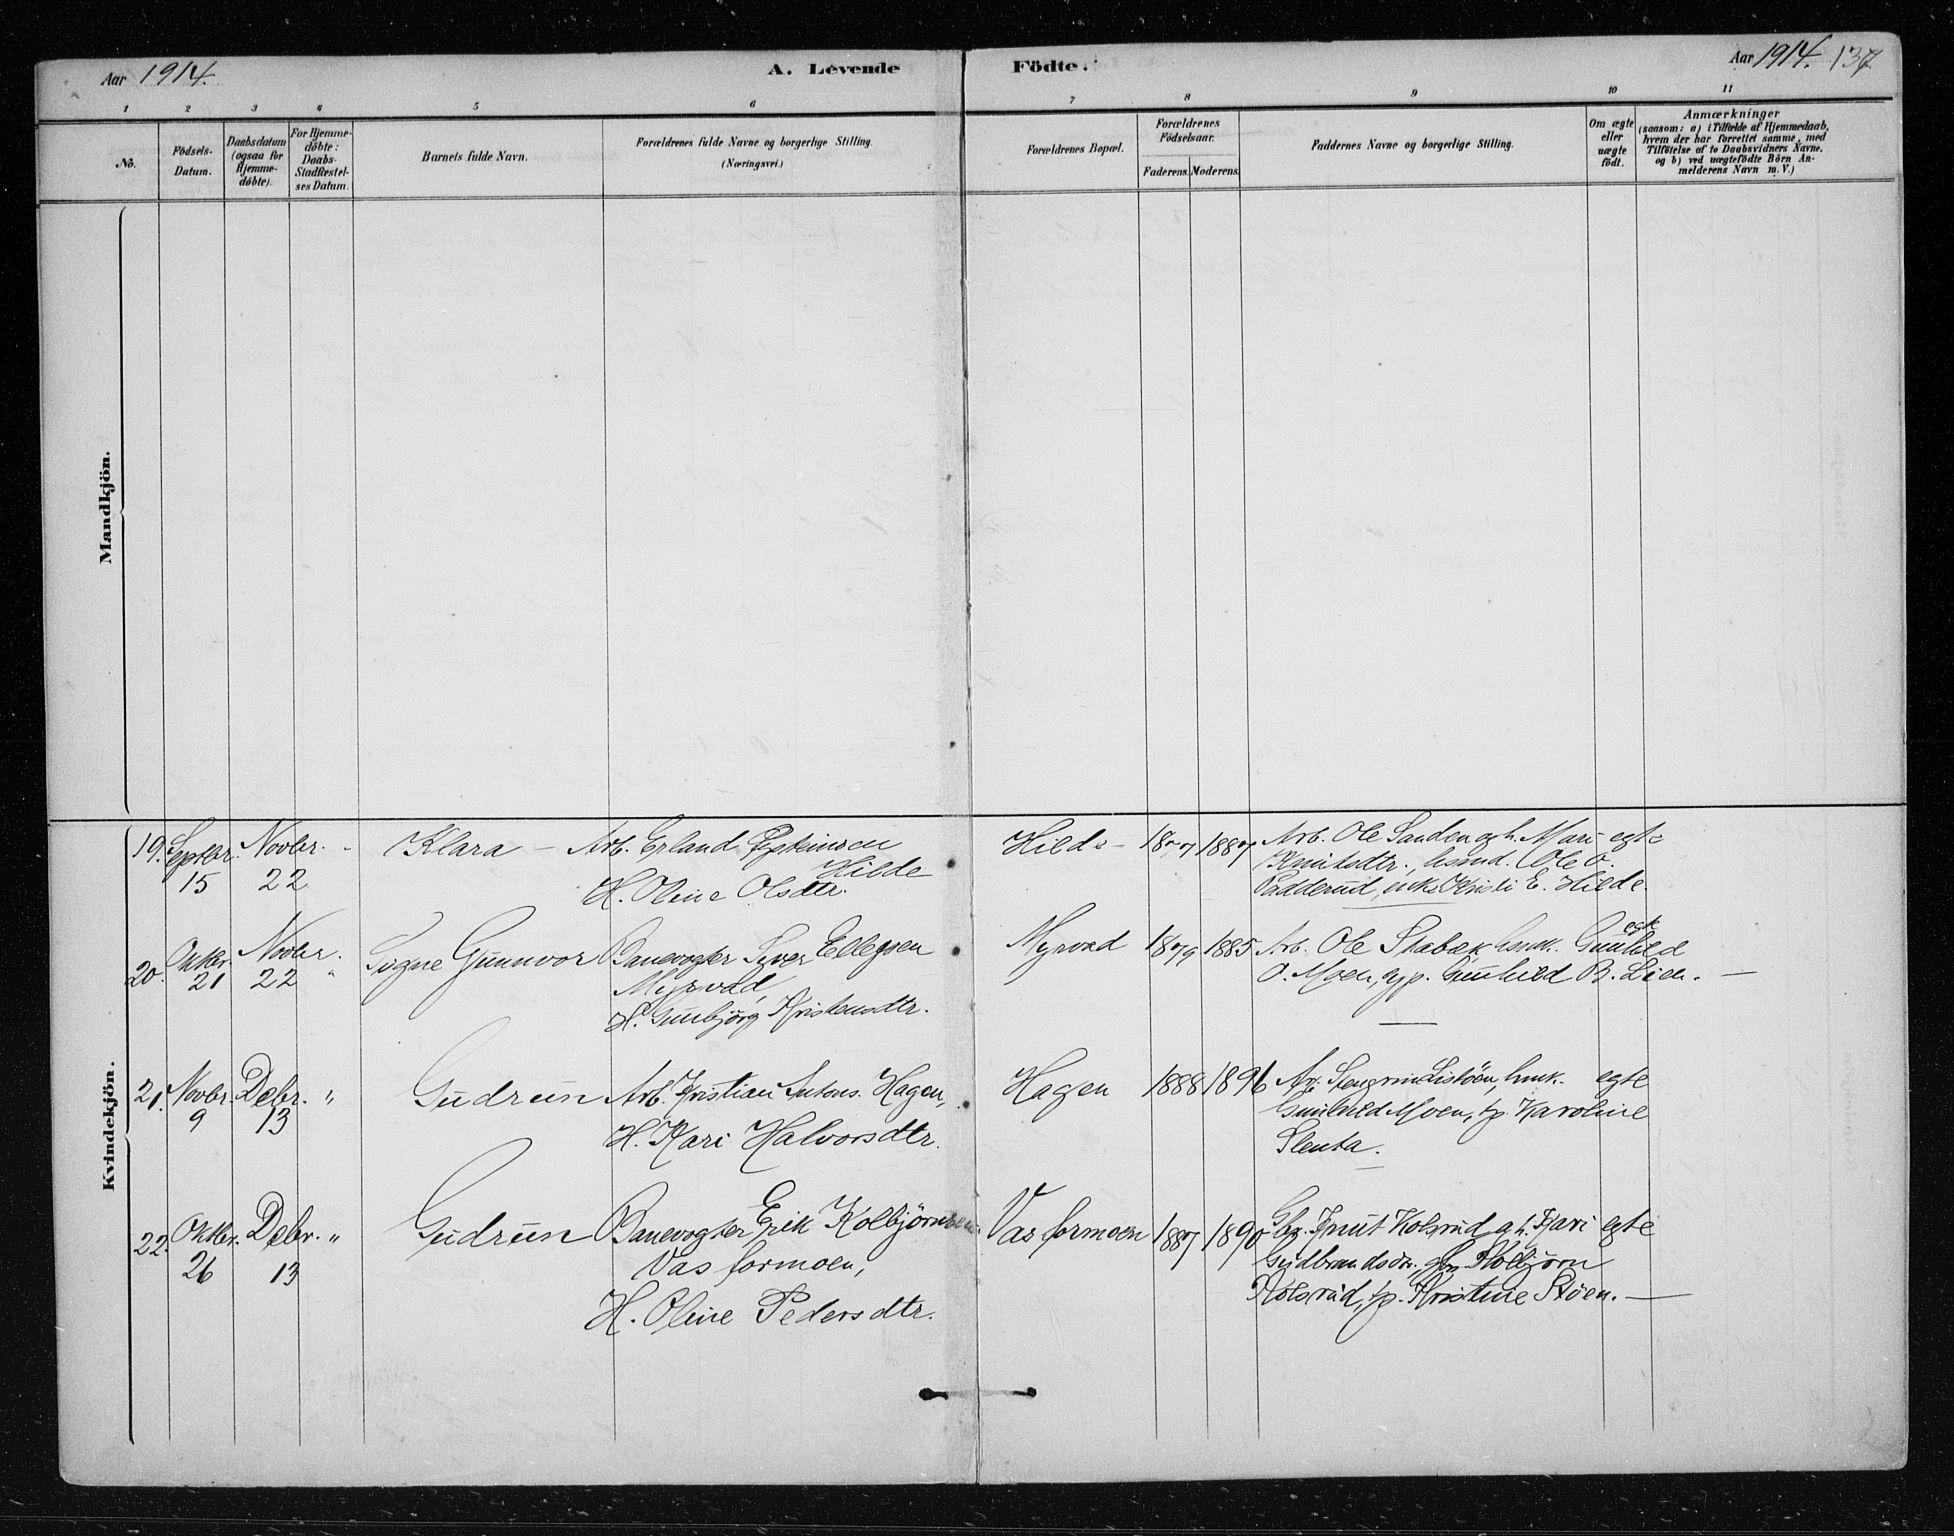 Aar 1914.
A. Levende
Födte.
Aar 1914. 137
1 2 3 4 5 6 7 8 9 10 11
No.
Födsels-
Datum.
Daabsdatum
(ogsaa for
Hjemme-
döbte).
For Hjemme-
döbte:
Daabs-
Stadfæstel-
ses Datum.
Barnets fulde Navn.
Forældrenes fulde Navne og borgerlige Stilling.
(Næringsvei.)
Forældrenes Bopæl.
Forældrenes
Födselsaar.
Faderens. Moderens.
Faddernes Navne og borgerlige Stilling.
Om ægte
eller
uægte
født.
Anmærkninger
(saasom: a) i Tilfælde af Hjemmedaab,
hvem der har forrettet samme, med
Tilföielse af to Daabsvidners Navne,
og b) ved uægtefödte Börn An-
melderens Navn m. V.)
Mandkjön.
Kvindekjön.
19. Septbr. Novbr. Klara – Arb. Erland
15 22 Hilde
H. Oline Olsdtr.
Hilde 1877 1887 Arb. Ole Sanden og h. Mari egte
Knutsdtr., Ole O.
Padderud, Kristi E. Hilde.
20. Oktbr. Novbr. Signe Gunnvor Banevogter Syver Ellegsen
21 22 " Myrvad,
H. Gunbjörg Kristensdtr.
Myrvad 1879 1885 Arb. Ole Stabæk, hmk. Gunhild egte
O. Moen, gjp. Gunhild B. Lien. —
21. Novbr. Debr. " Gudrun Arb. Kristian Antons. Hagen,
9 13
H. Kari Halvorsdtr.
Hagen 1888 1896 Arb. Stengrim Listöen, hmk. egte
Gunhild Moen, tp. Karoline
Slenta.
22. Oktbr. Debr. " Gudrun Banevogter Erik Kolbjørnsen
26 13 Vasformoen,
H. Oline Pedersdtr.
Vasformoen 1887 1890 Gbr. Knut Kolsrud og h. Kari egte
Gudbrandsdr., Kolbjørn
Kolsrud, tp. Kristine Støen. —